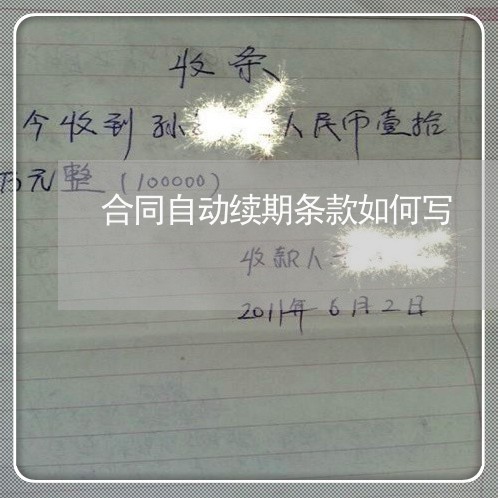 收条
今收到孙 人民币壹拾
万元整（100000）
合同自动续期条款如何写
收款人
2011年6月2日